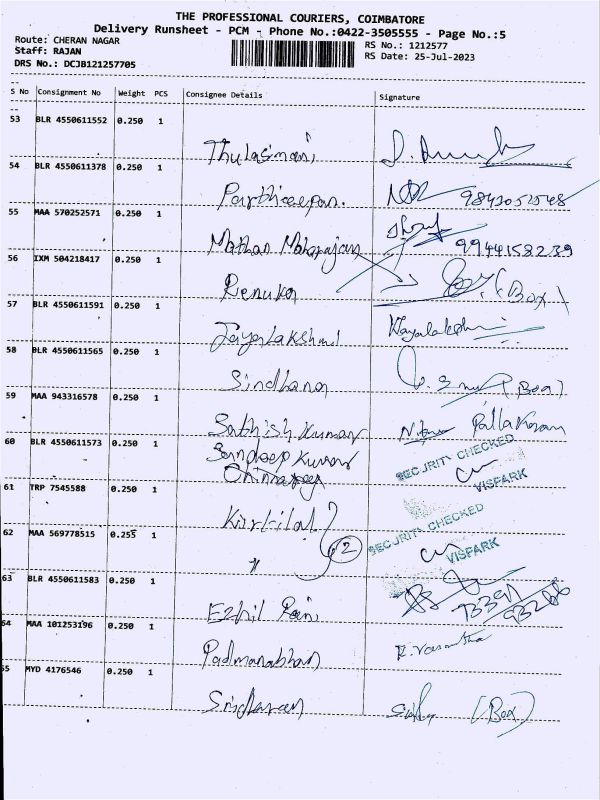 THE PROFESSIONAL COURIERS, COIMBATORE
Delivery Runsheet - PCM - Phone No.:0422-3505555 - Page No.:5
Route: CHERAN NAGAR RS No.: 1212577
Staff: RAJAN RS Date: 25-Jul-2023
DRS No.: DCJB121257705
S No Consignment No Weight PCS Consignee Details Signature
53 BLR 4550611552 0.250 1
Thulasmani
54 BLR 4550611378 0.250 1
Partheepan. 9843052548
55 MAA 570252571 0.250 1
Mathan Maharajan 9944158239
56 IXM 504218417 0.250 1
Renuka (Box)
57 BLR 4550611591 0.250 1
Jaya Lakshmi
58 BLR 4550611565 0.250 1
Sindhana (Box)
59 MAA 943316578 0.250 1
Sathish Kumar
60 BLR 4550611573 0.250 1
Sandeep Kumar SECURITY CHECKED
VISPARK
61 TRP 7545588 0.250 1
Kirtilal SECURITY CHECKED
62 MAA 569778515 0.255 1
" 2 VISPARK
63 BLR 4550611583 0.250 1
Ezhil Rani
64 MAA 101253196 0.250 1
Padmanabhan R. Vasantha
65 MYD 4176546 0.250 1
Sridharan (Box)